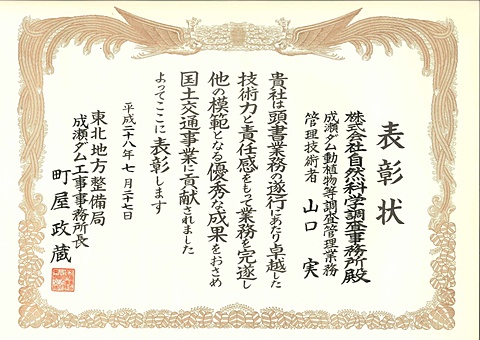 表彰状
株式会社自然科学調査事務所殿
成瀬ダム動植物等調査管理業務
管理技術者 山口 実
貴社は頭書業務の遂行にあたり卓越した
技術力と責任感をもって業務を完遂し
他の模範となる優秀な成果をおさめ
国土交通事業に貢献されました
よってここに表彰します
平成二十八年七月二十七日
東北地方整備局
成瀬ダム工事事務所長
町屋政蔵